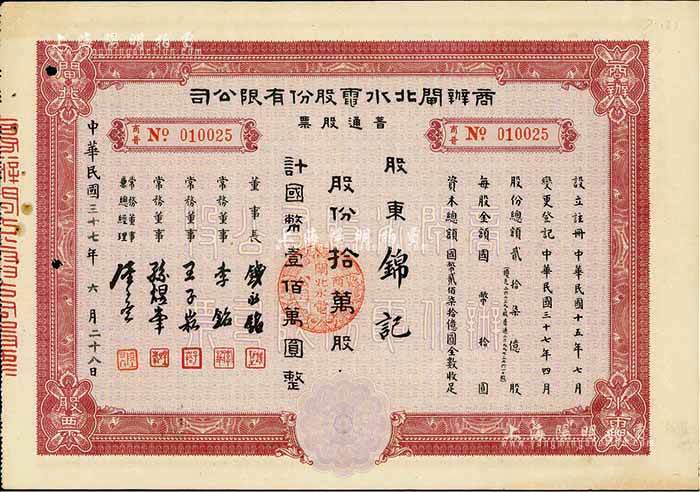 商辦閘北水電股份有限公司
普通股票
商普 № 010025
商普 № 010025
設立註冊 中華民國十五年七月
變更登記 中華民國三十七年四月
股份總額 貳拾柒億股
每股金額 國幣拾圓
資本總額 國幣貳佰柒拾億圓全數收足
股東 錦記
股份拾萬股
計國幣壹佰萬圓整
董事長
常務董事 李銘
常務董事 王子崧
常務董事 孫煜峯
常務董事兼總經理
中華民國三十七年六月二十八日
商辦
閘北
水電
股票
上海陽明拍賣